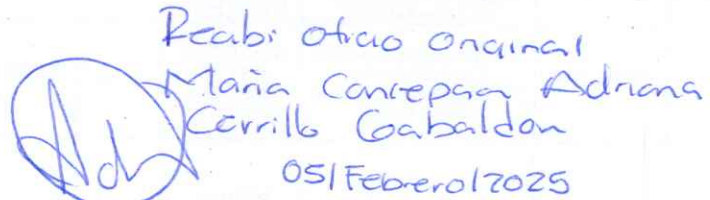 Recibi oficio original
Maria Concepcion Adriana
Cerrillo Gabaldon
05/Febrero/2025